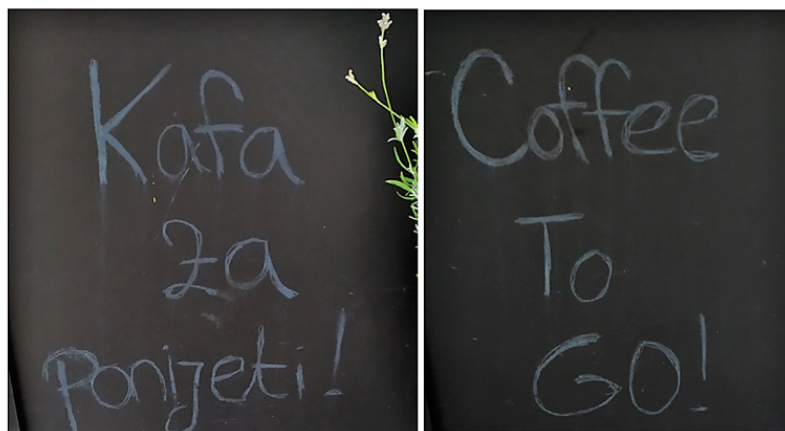 Kafa
za
ponijeti!
Coffee
To
GO!